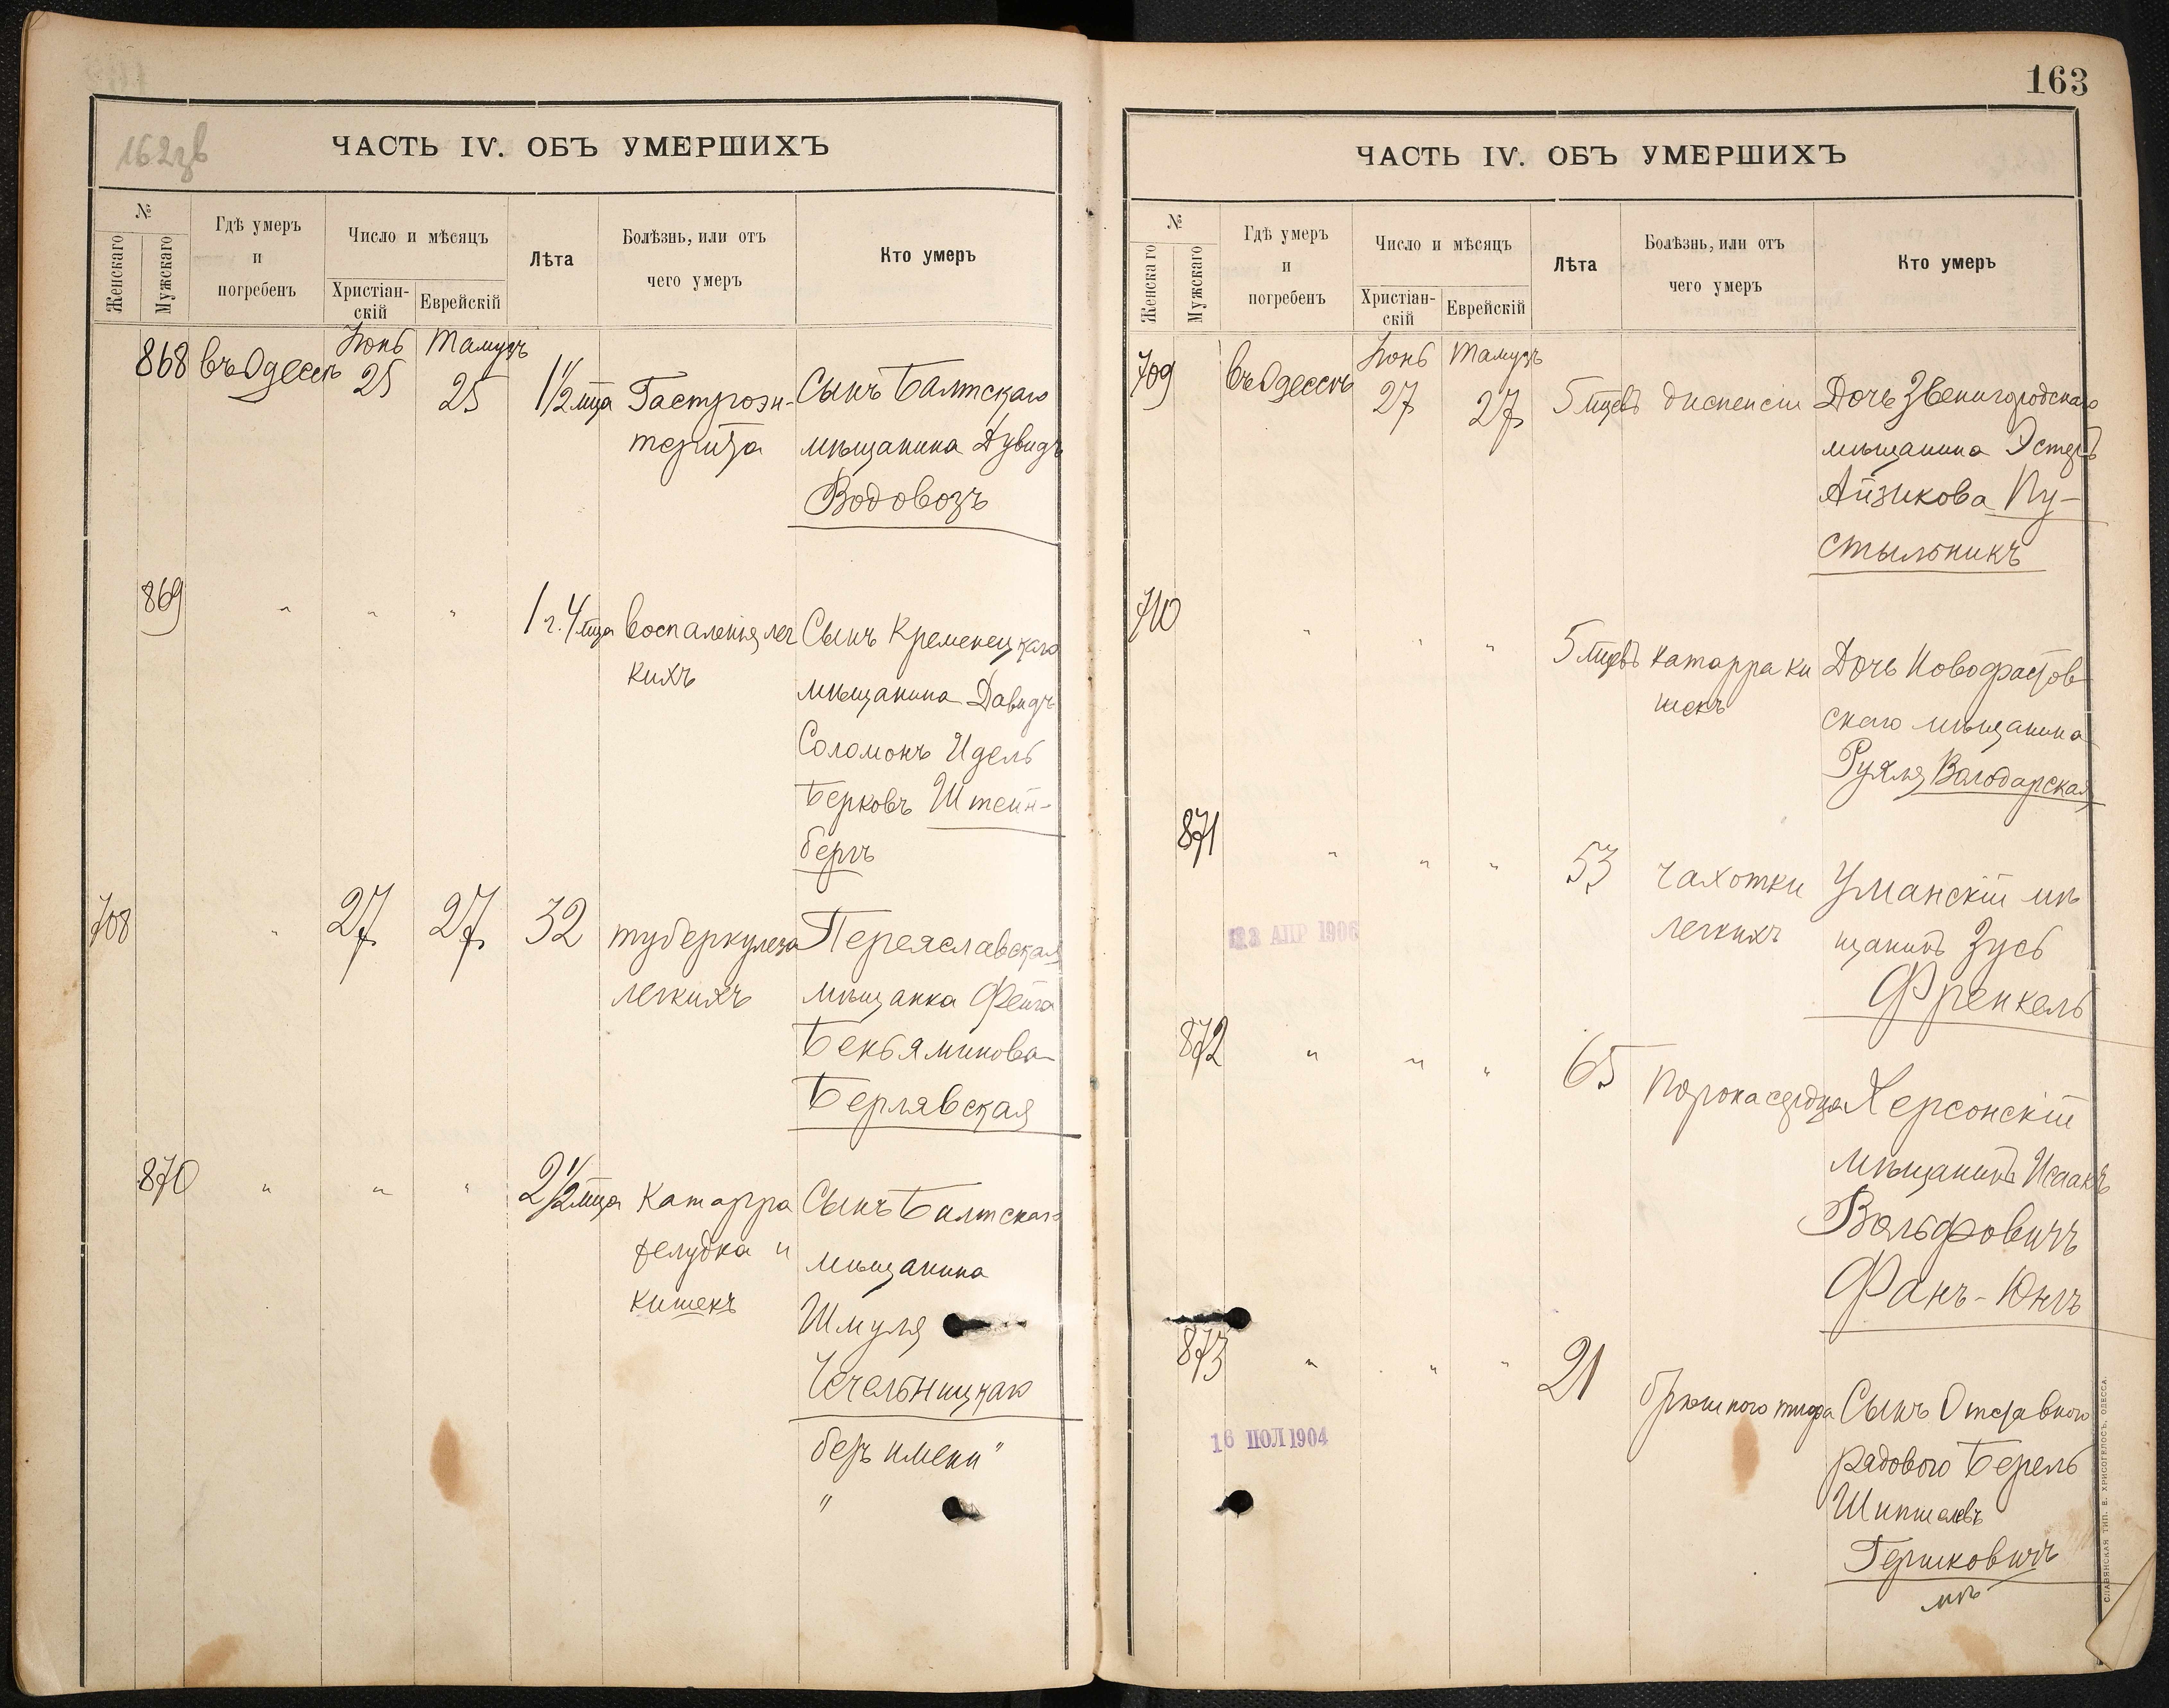 162зв
ЧАСТЬ IV. ОБЪ УМЕРШИХЪ
№
Женскаго
Мужскаго
Гдѣ умеръ
и
погребенъ
Число и мѣсяцъ
Христіан-
скій
Еврейскій
Лѣта
Болѣзнь, или отъ
чего умеръ
Кто умеръ
868 въ Одессѣ Іюнь 25 Тамузъ 25 1 1/2 мца Гастроэн-
терита
Сынъ Балтскаго
мѣщанина Дувидъ
Водовозъ
869 " " " 1 г. 4 мца воспаленія лег
кихъ
Сынъ Кременецкаго
мѣщанина Давидъ
Соломонъ Идель
Берковъ Штейн-
бергъ
708 " 27 27 32 туберкулеза
легкихъ
Переяславская
мѣщанка Фейга
Беньяминова
Берлявская
870 " " " 2 1/2 мца Катарра
желудка и
кишекъ
Сынъ Балтскаго
мѣщанина
Шмуля
Чечельницкаго
безъ имени "
"
163
ЧАСТЬ IV. ОБЪ УМЕРШИХЪ
№
Женскаго
Мужскаго
Гдѣ умеръ
и
погребенъ
Число и мѣсяцъ
Христіан-
скій
Еврейскій
Лѣта
Болѣзнь, или отъ
чего умеръ
Кто умеръ
709 въ Одессѣ Іюнь 27 Тамузъ 27 5 мцевъ диспепсіи
Дочь Звенигородскаго
мѣщанина Эстеръ
Айзикова Пу-
стыльникъ
710 " " " 5 мцевъ катарра ки
шекъ
Дочь Новофастов
скаго мѣщанина
Рухля Володарская
871 " " " 53 чахотки
легкихъ
Уманскій мѣ
щанинъ Зусь
Френкель
АПР 1906
872 " " " 65 порока сердца
Херсонскій
мѣщанинъ Исаакъ
Вольфовичъ
Фанъ-Юнгъ
873 " " " 21 брюшного тифа
Сынъ Отставного
рядового Берель
Герш­ковичъ
16 ІЮЛ 1904
СЛАВЯНСКАЯ ТИП. Е. ХРИСОГЕЛОСЪ, ОДЕССА.